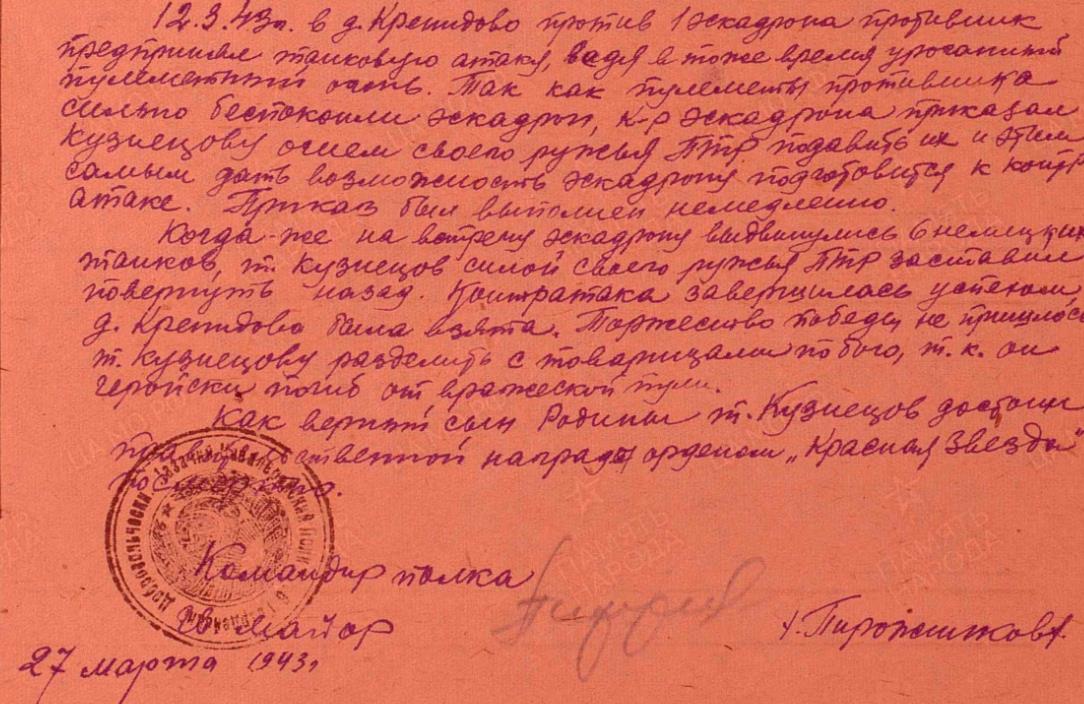 12.3.43г. в д. Крепидово против 1 эскадрона противник
предпринял танковую атаку, ведя в тоже время ураганный
пулеметный огонь. Так как пулеметы противника
сильно беспокоили эскадрон, к-р эскадрона приказал
Кузнецову огнем своего ружья ПТР подавить их и этим
самым дать возможность эскадрону подготовится к контр
атаке. Приказ был выполнен немедленно.
Когда-же на встречу эскадрону выдвинулись 6 немецких
танков, т. Кузнецов силой своего ружья ПТР заставил
повернуть назад. Контратака завершилась успехом,
д. Крепидово была взята. Торжество победы не пришлось
т. Кузнецову разделить с товарищами по бою, т.к. он
геройски погиб от вражеской пули.
Как верный сын Родины т. Кузнецов достоин
правительственной награды орденом „Красная Звезда"
посмертно.
Командир полка
гв. майор
/. Пирожников/.
27 марта 1943г
Добровольческий казачий кавалерийский полк
ПАМЯТЬ
НАРОДА